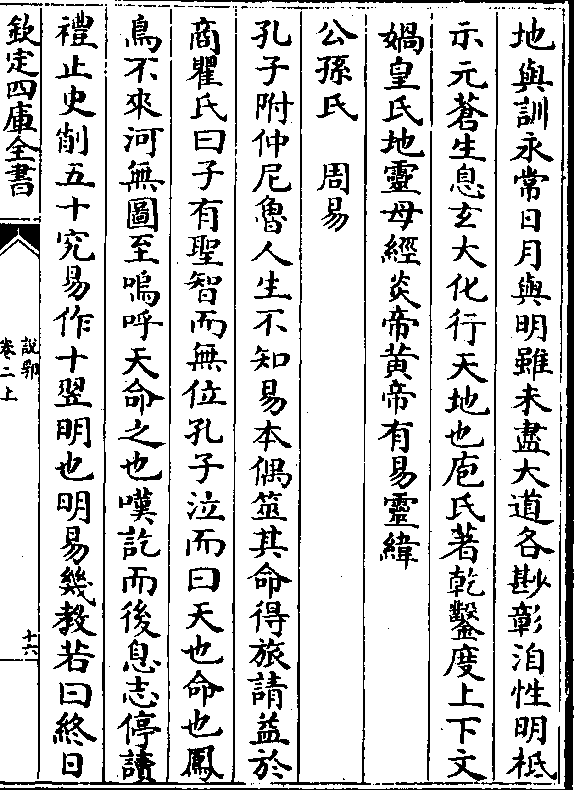 地與訓永常日月與明雖未盡大道各尠彰洎性明柢
示元蒼生息玄大化行天地也庖氏著乾鑿度上下文
媧皇氏地靈母經炎帝黃帝有易靈緯
公孫氏　周易
孔子附仲尼魯人生不知易本偶筮其命得旅請益於
商瞿氏曰子有聖智而無位孔子泣而曰天也命也鳳
鳥不來河無圖至嗚呼天命之也嘆訖而後息志停讀
禮止史削五十究易作十翌明也明易幾教若曰終日
欽定四庫全書
說郛
卷二上
十六